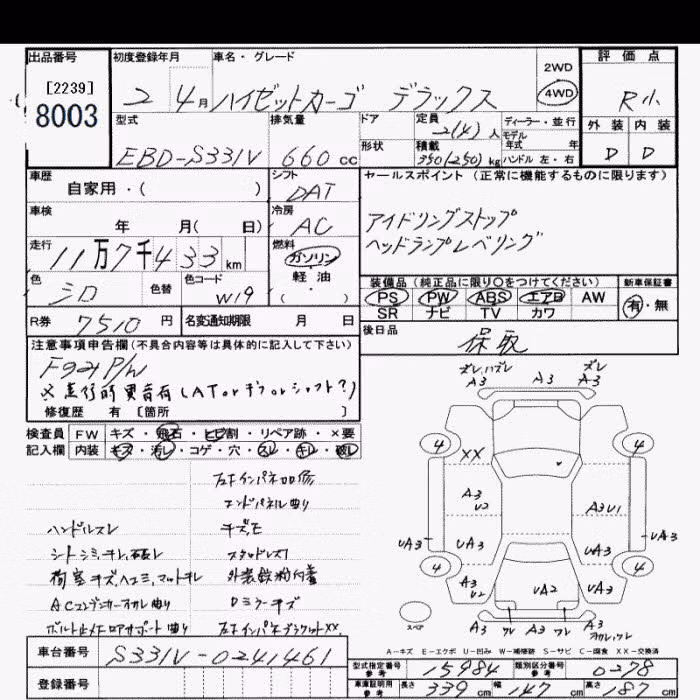 出品番号 初度登録年月 車名・グレード 評価点
[2239]
8003
2年 4月 ハイゼットカーゴ デラックス 2WD 4WD R小
型式 排気量 ドア 定員 2(4)人 ディーラー・並行 外装 内装
EBD-S331V 660cc 形状 積載 350(250)kg モデル年式 年 ハンドル 左・右 D D
車歴 シフト セールスポイント (正常に機能するものに限ります)
自家用・( ) DAT
車検 冷房 アイドリングストップ
年 月( 日) AC ヘッドランプレベリング
走行 燃料
11万7千433km ガソリン
色 色替 色コード 軽油 装備品(純正品に限り○をつけてください) 新車保証書
シロ W19 ・( ) PS PW ABS エアB AW 有・無
SR ナビ TV カワ
R券 7510円 名変通知期限 月 日 後日品
注意事項申告欄(不具合内容等は具体的に記入して下さい) 保取
※走行時異音有(ATorデフorシャフト?)
修復歴 有 [箇所 ]
検査員 FW キズ・飛石・ヒビ割・リペア跡・×要
記入欄 内装 キズ・汚レ・コゲ・穴・スレ・キレ・破レ
ズレ,ハズレ ズレ
A3 A3 A3
4 4
XX
A3 U2 A3U1
UA3 UA3 UA3 UA3
4 4
A3 U2 UA2 A3
A3 ワレ A3 ワレ A3
スペア
左Fインパネ凹修
エンドパネル曲り
ハンドルスレ キズ,E
シートシミ,キレ,破レ スタッドレス
荷室キズ,ヘコミ,マットキレ 外装鉄粉付着
ACコンデンサーカカレ曲り Dミラーキズ
ボルト止メFロアサポート曲り 左FインパネブラケットXX,
A-キズ E-エクボ U-凹み W-補修跡 S-サビ C-腐食 XX-交換済
車台番号 S331V-0241461
型式指定番号 参考 15984 類別区分番号 参考 0278
登録番号 車庫証明用 参考 長さ 339cm 幅 147cm 高さ 187cm